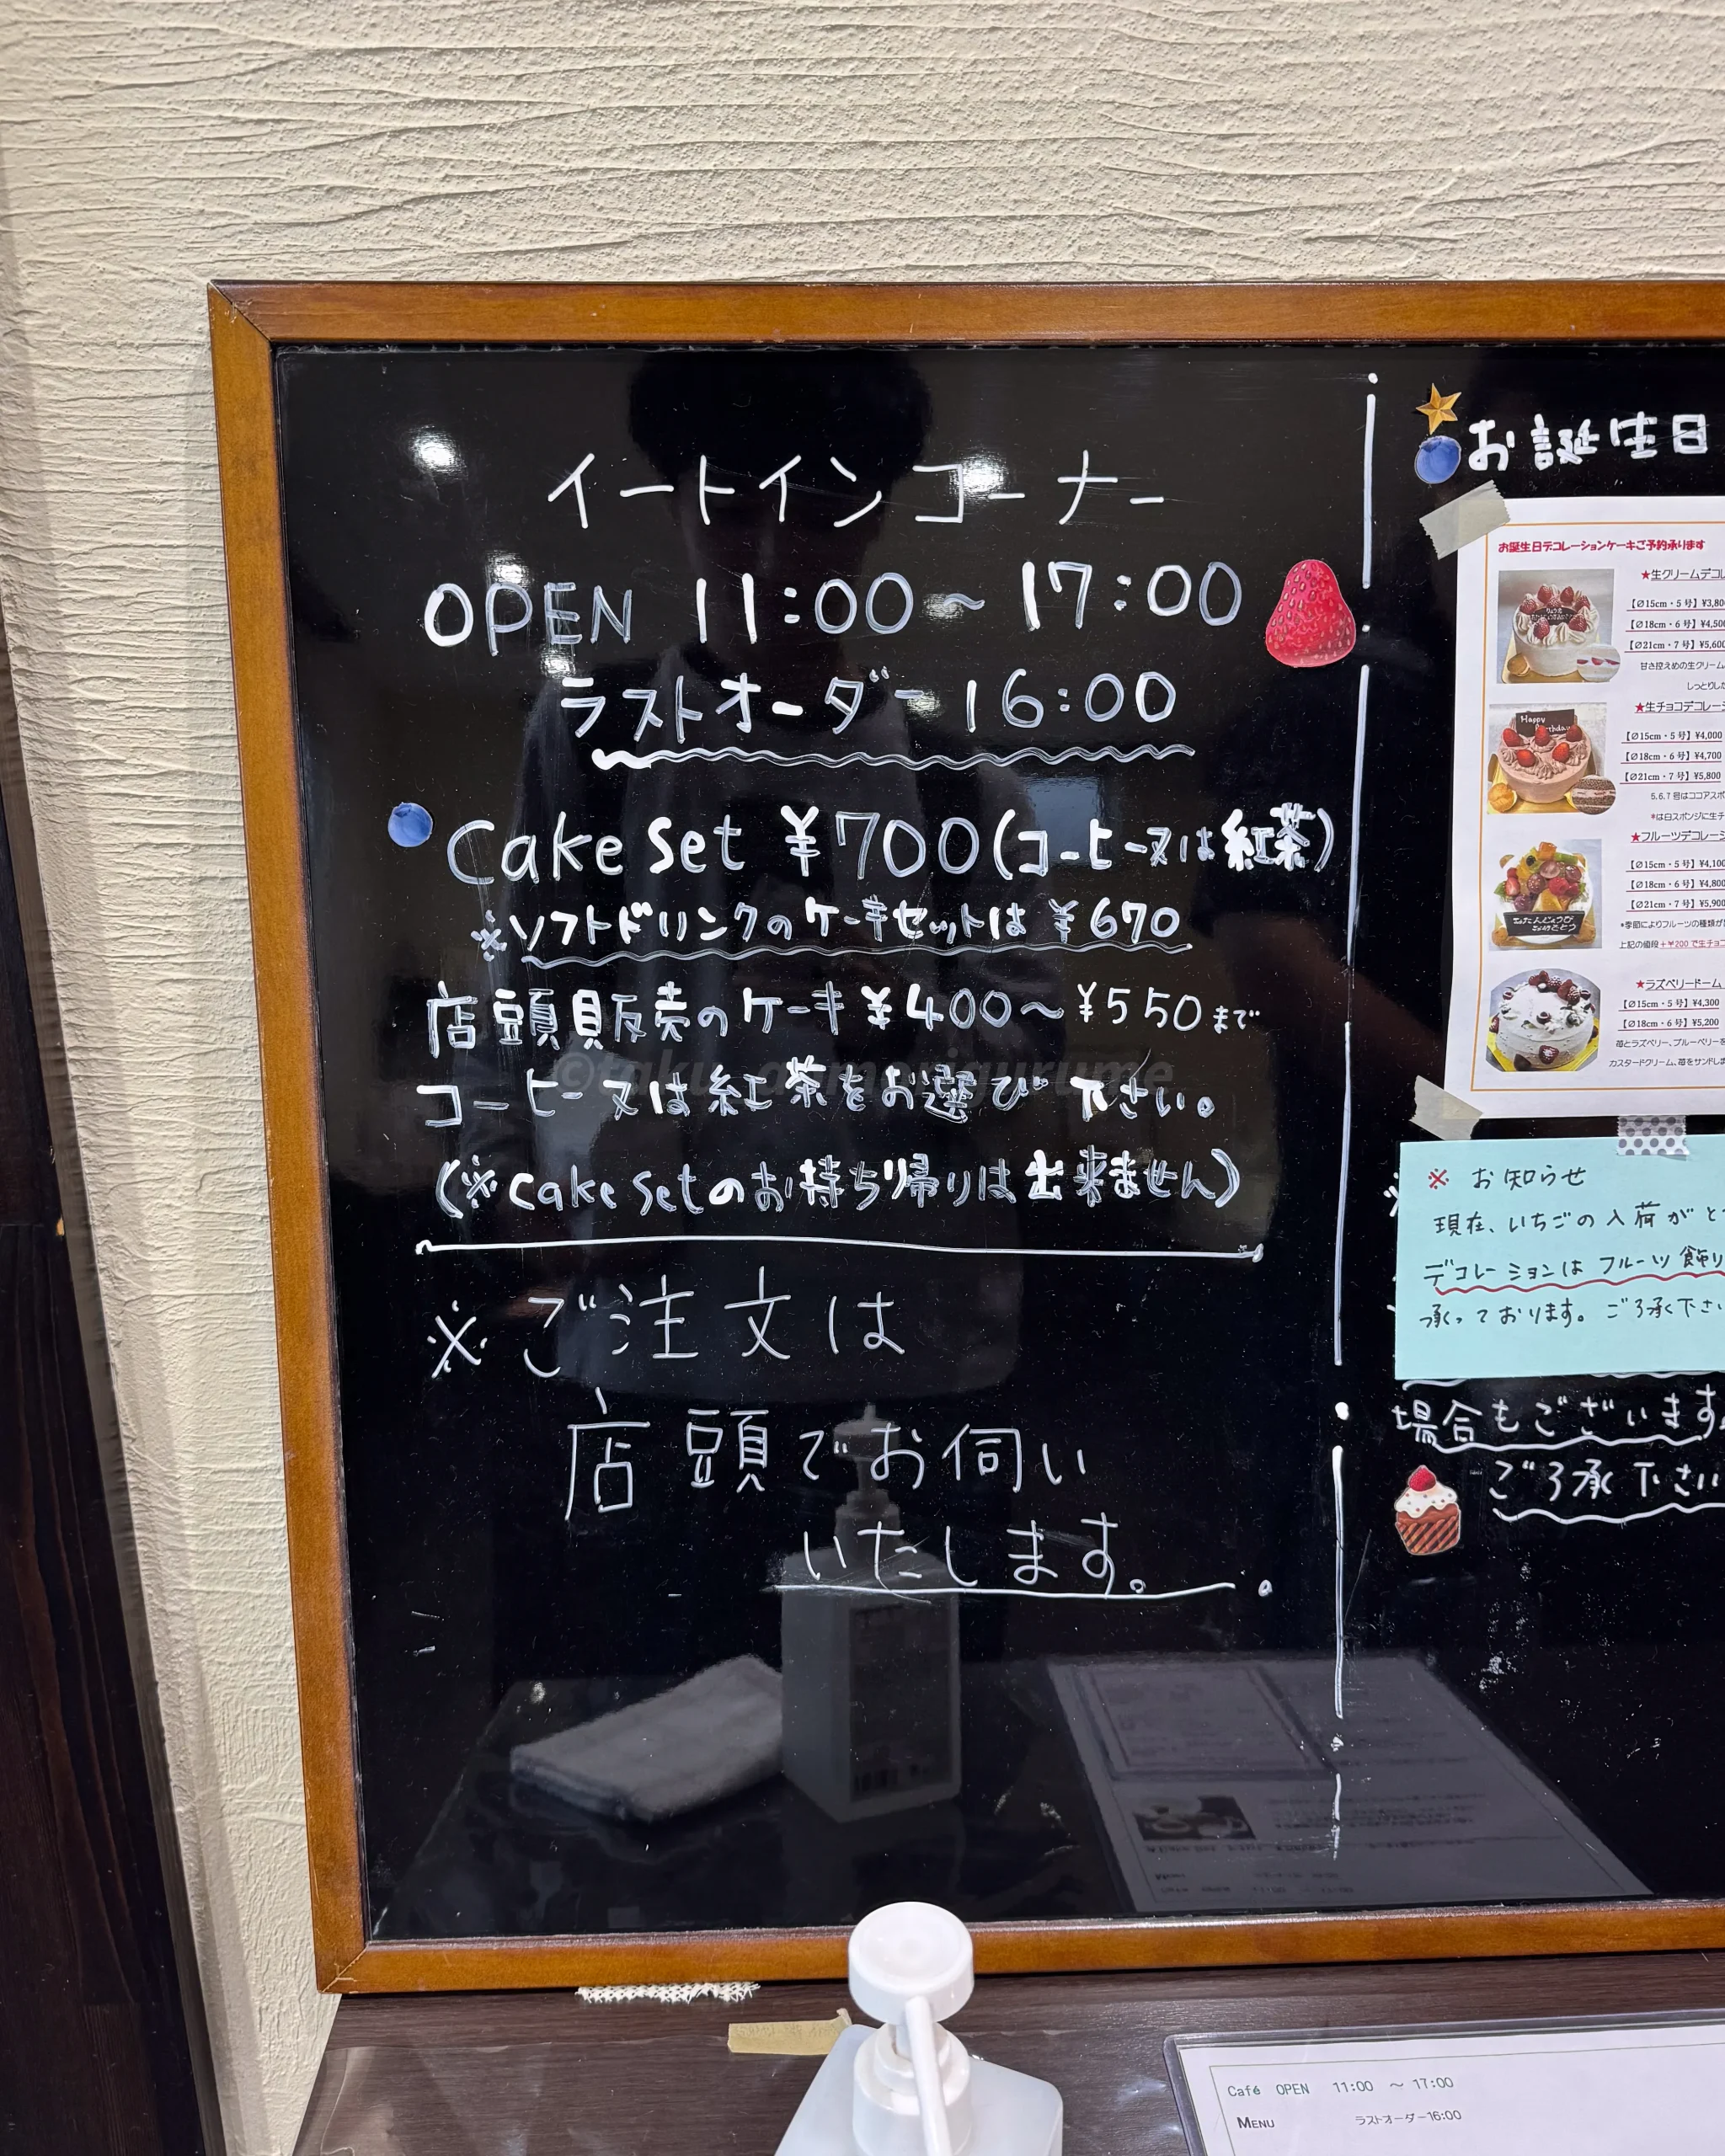 イートインコーナー
OPEN 11:00〜17:00
ラストオーダー 16:00
Cake Set ¥700(コーヒー又は紅茶)
※ソフトドリンクのケーキセットは ¥670
店頭販売のケーキ¥400〜¥550まで
コーヒー又は紅茶をお選び下さい。
(※Cake Setのお持ち帰りは出来ません)
※ご注文は
店頭でお伺い
いたします。
お誕生日
お誕生日デコレーションケーキご予約承ります
★生クリームデコレ
【∅15cm・5号】¥3,80
【∅18cm・6号】¥4,500
【∅21cm・7号】¥5,600
甘さ控えめの生クリーム
しっとりした
★生チョコデコレーシ
Happy
【∅15cm・5号】¥4,000
【∅18cm・6号】¥4,700
【∅21cm・7号】¥5,800
5.6.7号はココアスポ
*は白スポンジに生チ
★フルーツデコレーシ
【∅15cm・5号】¥4,100
【∅18cm・6号】¥4,800
【∅21cm・7号】¥5,900
*季節によりフルーツの種類が
上記の値段+¥200で生チョコ
★ラズベリードーム
【∅15cm・5号】¥4,300
【∅18cm・6号】¥5,200
苺とラズベリー、ブルーベリーを
カスタードクリーム、苺をサンドしま
※ お知らせ
現在、いちごの入荷がと
デコレーションはフルーツ飾り
承っております。ご了承下さい
場合もございます。
ご了承下さい
Café OPEN 11:00 〜 17:00
MENU ラストオーダー16:00